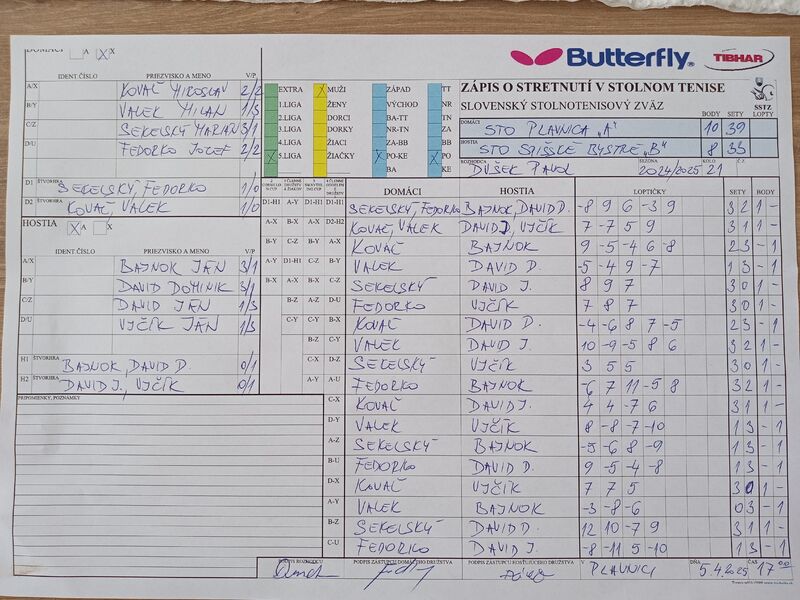 DOMÁCI A X
IDENT.ČÍSLO PRIEZVISKO A MENO V/P
A/X KOVAČ MIROSLAV 2/2
B/Y VALEK MILAN 1/3
C/Z SEKELSKÝ MARIÁN 3/1
D/U FEDORKO JOZEF 2/2
D1 ŠTVORHRA SEKELSKÝ, FEDORKO 1/0
D2 ŠTVORHRA KOVAČ, VALEK 1/0
HOSTIA A X
IDENT.ČÍSLO PRIEZVISKO A MENO V/P
A/X BAJNOK JÁN 3/1
B/Y DAVID DOMINIK 3/1
C/Z DAVID JÁN 1/3
D/U VJČÍK JÁN 1/3
H1 ŠTVORHRA BAJNOK, DAVID D. 0/1
H2 ŠTVORHRA DAVID J., VJČÍK 0/1
PRIPOMIENKY, POZNÁMKY
EXTRA X MUŽI ZÁPAD TT
1.LIGA ŽENY VÝCHOD NR
2.LIGA DORCI BA-TT TN
3.LIGA DORKY NR-TN ZA
4.LIGA ŽIACI ZA-BB BB
X 5.LIGA ŽIAČKY X PO-KE X PO
BA KE
Butterfly TIBHAR
ZÁPIS O STRETNUTÍ V STOLNOM TENISE
SLOVENSKÝ STOLNOTENISOVÝ ZVÄZ SSTZ
BODY SETY LOPTY
DOMÁCI STO PLAVNICA "A" 10 39
HOSTIA STO SPIŠSKÉ BYSTRÉ "B" 8 35
ROZHODCA DUŠEK PAVOL SEZÓNA 2024/2025 KOLO 21 Č.Z.
DOMÁCI HOSTIA LOPTIČKY SETY BODY
D1-H1 A-Y D1-H1 D1-H1 SEKELSKÝ, FEDORKO BAJNOK, DAVID D. -8 9 6 -3 9 3 2 1 -
A-X B-X A-X D2-H2 KOVAČ, VALEK DAVID J, VJČÍK 7 -7 5 9 3 1 1 -
B-Y C-Z B-Y A-X KOVAČ BAJNOK 9 -5 -4 6 -8 2 3 - 1
A-Y D1-H1 C-Z B-Y VALEK DAVID D. -5 -4 9 -7 1 3 - 1
B-X A-X B-X C-Z SEKELSKÝ DAVID J. 8 9 7 3 0 1 -
B-Z A-Z D-U FEDORKO VJČÍK 7 8 7 3 0 1 -
C-Y C-Y B-X KOVAČ DAVID D. -4 -6 8 7 -5 2 3 - 1
B-Z C-Y VALEK DAVID J. 10 -9 -5 8 6 3 2 1 -
C-X D-Z SEKELSKÝ VJČÍK 3 5 5 3 0 1 -
A-Y A-U FEDORKO BAJNOK -6 7 11 -5 8 3 2 1 -
C-X KOVAČ DAVID J. 4 4 -7 6 3 1 1 -
D-Y VALEK VJČÍK 8 -8 -7 -10 1 3 - 1
A-Z SEKELSKÝ BAJNOK -5 -6 8 -9 1 3 - 1
B-U FEDORKO DAVID D. 9 -5 -4 -8 1 3 - 1
D-X KOVAČ VJČÍK 7 7 5 3 0 1 -
A-Y VALEK BAJNOK -3 -8 -6 0 3 - 1
B-Z SEKELSKÝ DAVID D. 12 10 -7 9 3 1 1 -
C-U FEDORKO DAVID J. -8 -11 5 -10 1 3 - 1
PODPIS ROZHODCU PODPIS ZÁSTUPCU DOMÁCEHO DRUŽSTVA PODPIS ZÁSTUPCU HOSŤUJÚCEHO DRUŽSTVA V PLAVNICI DŇA 5.4.2025 ČAS 17 00